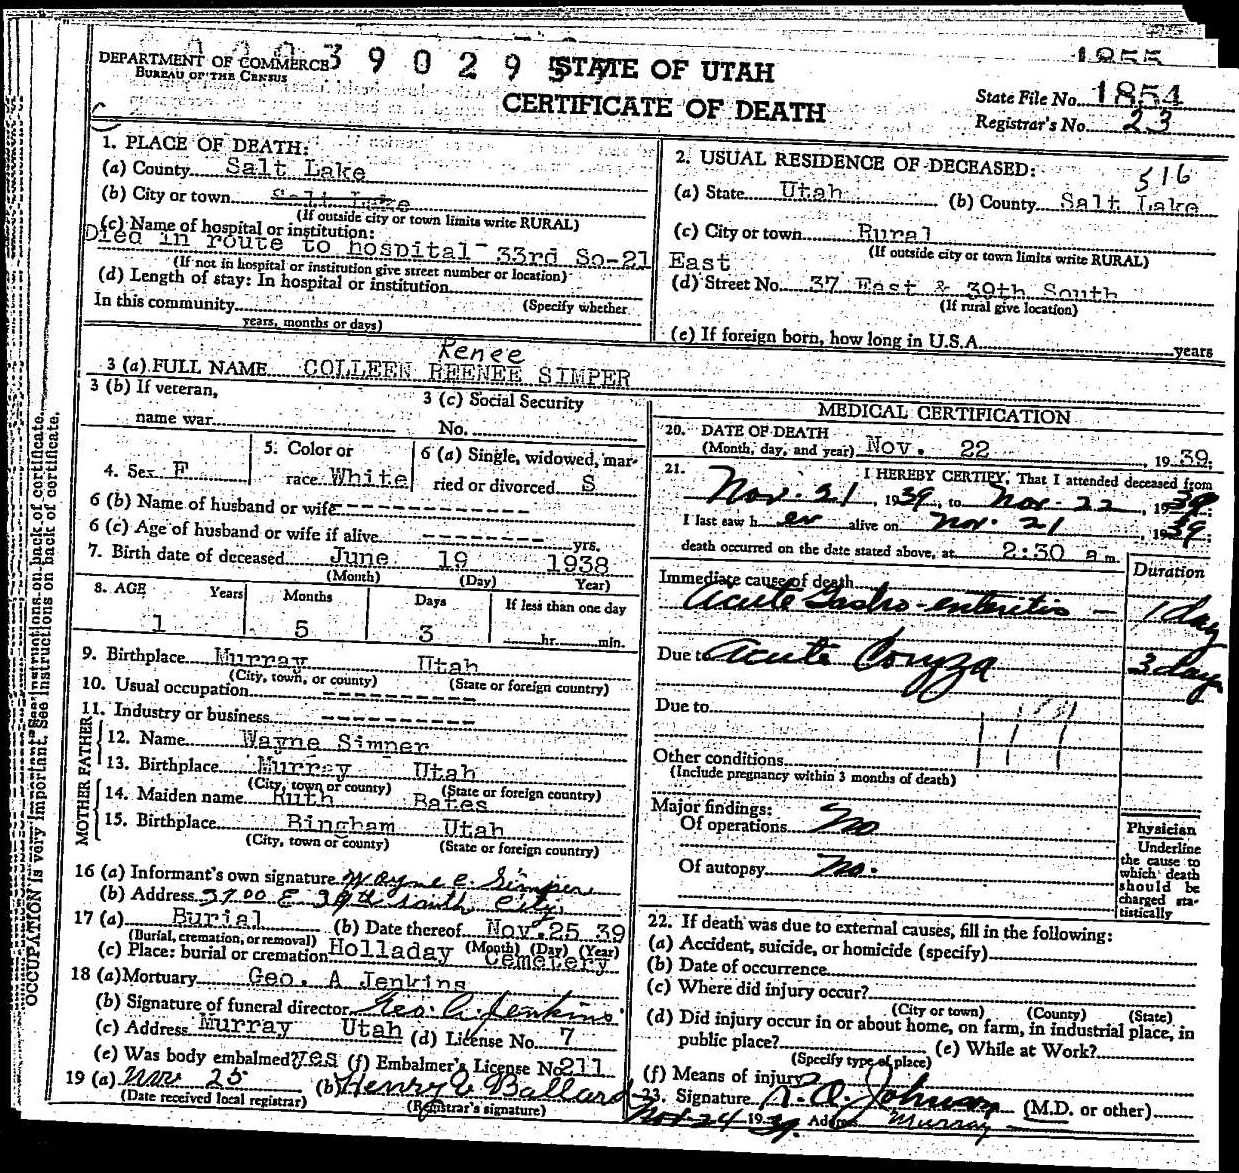 1855
DEPARTMENT OF COMMERCE
BUREAU OF THE CENSUS
39029
STATE OF UTAH
CERTIFICATE OF DEATH
State File No. 1854
Registrar's No. 23
1. PLACE OF DEATH:
(a) County Salt Lake
(b) City or town Salt Lake
(If outside city or town limits write RURAL)
(c) Name of hospital or institution:
Died in route to hospital - 33rd So-21 East
(If not in hospital or institution give street number or location)
(d) Length of stay: In hospital or institution
(Specify whether
In this community
years, months or days)
2. USUAL RESIDENCE OF DECEASED:
516
(a) State Utah (b) County Salt Lake
(c) City or town Rural
(If outside city or town limits write RURAL)
(d) Street No. 37 East & 39th South
(If rural give location)
(e) If foreign born, how long in U.S.A. years
Renee
3 (a) FULL NAME COLLEEN REENEE SIMPER
3 (b) If veteran,
name war
3 (c) Social Security
No.
4. Sex F
5. Color or
race White
6 (a) Single, widowed, mar-
ried or divorced S
6 (b) Name of husband or wife
6 (c) Age of husband or wife if alive yrs.
7. Birth date of deceased June 19 1938
(Month) (Day) Year)
8. AGE Years Months Days If less than one day
1 5 3 hr. min.
9. Birthplace Murray Utah
(City, town, or county) (State or foreign country)
10. Usual occupation
11. Industry or business
FATHER
12. Name Wayne Simper
13. Birthplace Murray Utah
(City, town or county) (State or foreign country)
MOTHER
14. Maiden name Ruth Bates
15. Birthplace Bingham Utah
(City, town or county) (State or foreign country)
16 (a) Informant's own signature Wayne C. Simper
(b) Address 3700 E 39th South City
17 (a) Burial (b) Date thereof Nov. 25 39
(Burial, cremation, or removal) (Month) (Day) (Year)
(c) Place: burial or cremation Holladay Cemetery
18 (a) Mortuary Geo. A Jenkins
(b) Signature of funeral director Geo. A. Jenkins
(c) Address Murray Utah (d) License No. 7
(e) Was body embalmed? yes (f) Embalmer's License No 211
19 (a) Nov 25 (b) Henry V Ballard
(Date received local registrar) (Registrar's signature)
MEDICAL CERTIFICATION
20. DATE OF DEATH
(Month, day, and year) Nov. 22, 1939
21. I HEREBY CERTIFY, That I attended deceased from
Nov. 21, 1939, to Nov. 22, 1939
I last saw h er alive on Nov. 21, 1939
death occurred on the date stated above, at 2:30 a m.
Duration
Immediate cause of death
Acute Gastro-enteritis - 1 day
Due to Acute Coryza 3 days
Due to
119
Other conditions
(Include pregnancy within 3 months of death)
Major findings:
Of operations No
Of autopsy No.
Physician
Underline
the cause to
which death
should be
charged sta-
tistically
22. If death was due to external causes, fill in the following:
(a) Accident, suicide, or homicide (specify)
(b) Date of occurrence
(c) Where did injury occur?
(City or town) (County) (State)
(d) Did injury occur in or about home, on farm, in industrial place, in
public place? (e) While at Work?
(Specify type of place)
(f) Means of injury
23. Signature Johnson (M.D. or other)
Nov. 24 1939. Address Murray
OCCUPATION is very important. See instructions on back of certificate.